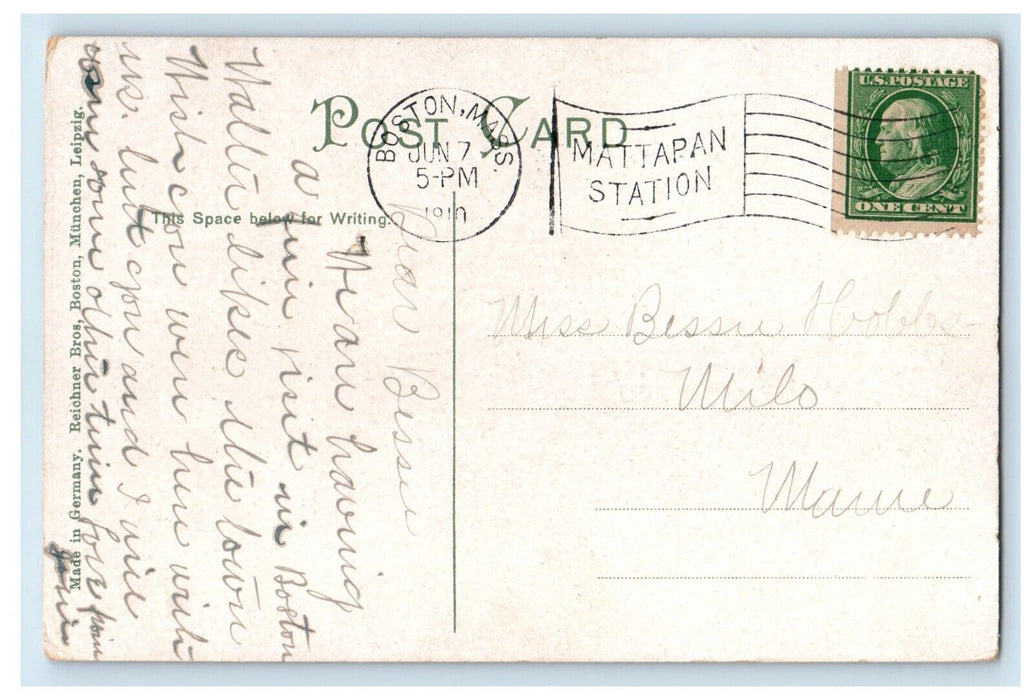 POST CARD
BOSTON, MASS.
JUN 7
5-PM
1910
MATTAPAN
STATION
U.S. POSTAGE
ONE CENT
This Space below for Writing.
Made in Germany. Reichner Bros, Boston, München, Leipzig.
Dear Bessie
We are having
a fine visit in Boston
Walter likes the town
Wish you were here with
us. but you and I will
come some other time love from
Miss Bessie Hobbs
Milo
Maine